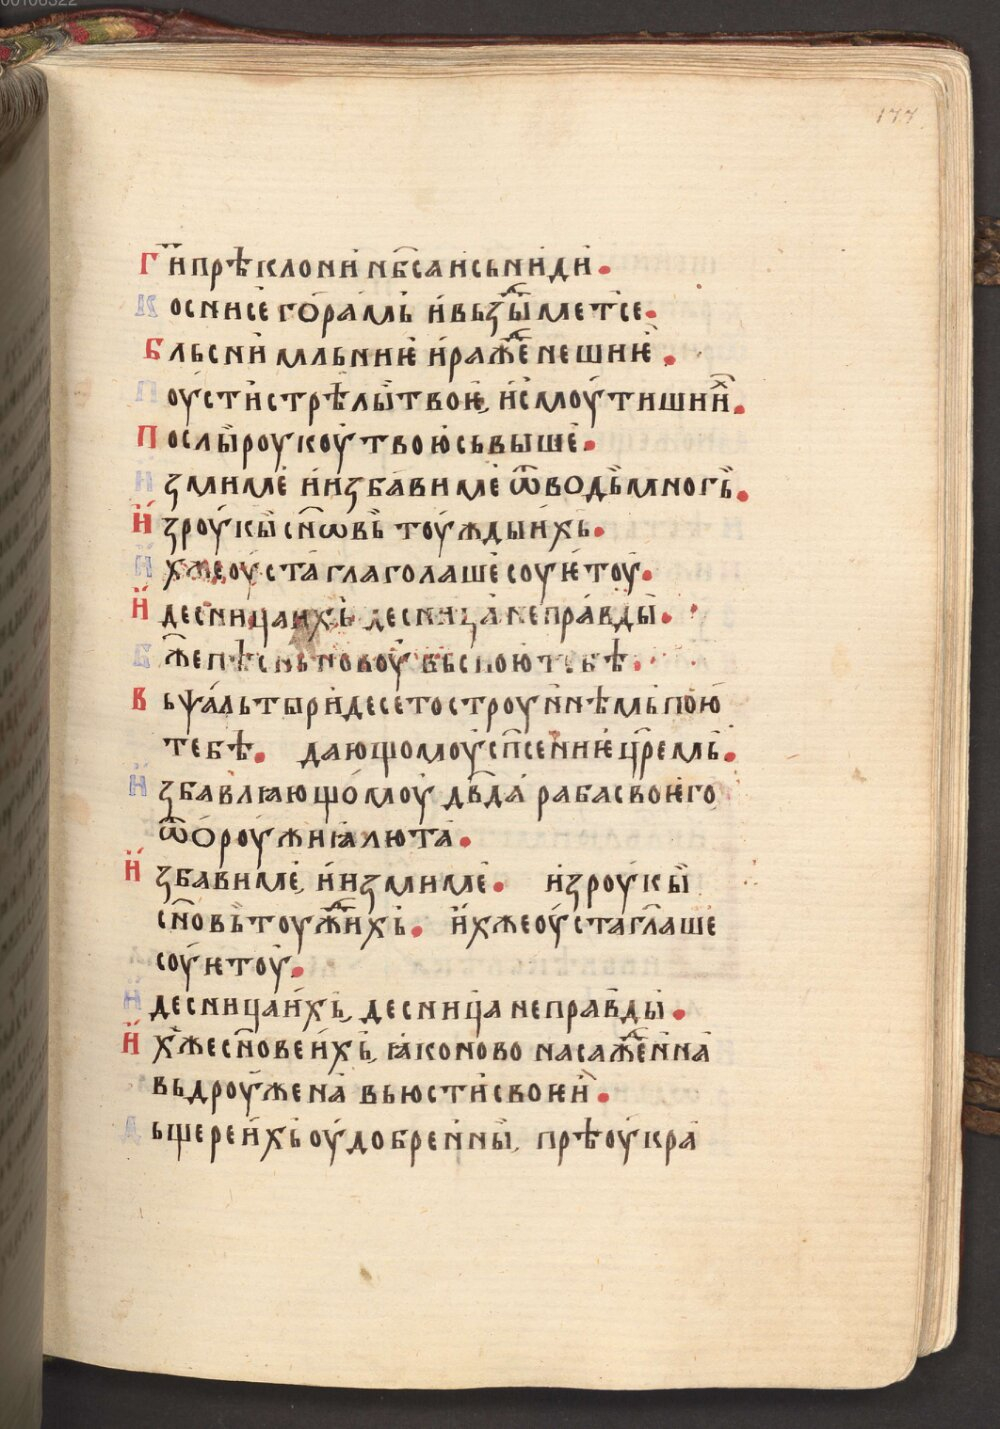 00106322
177
Гн҃и прѣклони нб҃са и сьниди.
Косни се горамь и вьзⷣымет се.
Бльсни мльниѥ и ражⷣенеши ѥ.
Поусти стрѣлы твоѥ, и смоутиши иⷯ.
Посли роукоу твою сь выше.
Изми ме и избави ме ѿ водь многь.
Из роукы сн҃ѡвь тоуждыихь.
Их же оуста глаголаше соуѥтоу.
И десница ихь десница неправды.
Б҃же пѣснь новоу вьспою тебѣ.
Вь ѱальтыри десетостроуннѣмь пою
тебѣ. дающомоу сп҃сениѥ цр҃емь.
Избавлꙗющомоу дв҃да раба своѥго
ѿ ороужиꙗ люта.
Избави ме, и изми ме. из роукы
сн҃овь тоужⷣиихь. ихже оуста гл҃аше
соуѥтоу.
И десница ихь, десница неправды.
Ихже сн҃ове ихь, ꙗко ново насажⷣенна
вьдроужена вь юсти своѥи.
Дьщере ихь оудобренны, прѣоукра